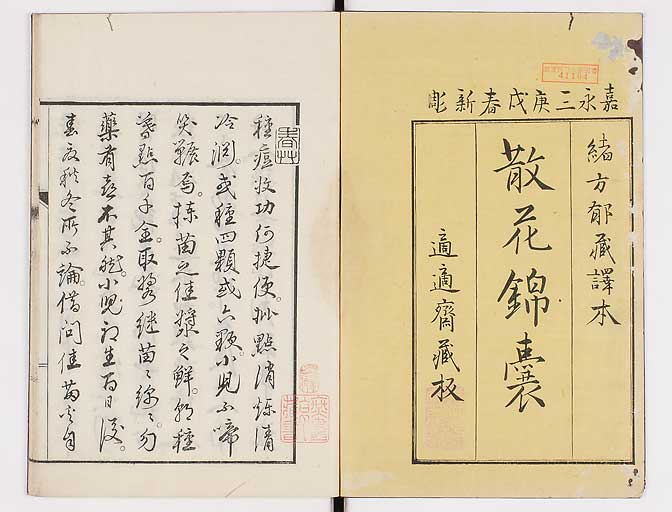 嘉永三庚戌春新彫
緒方郁藏譯本
散花錦囊
適適齋藏板
41104
種痘收功何捷便。妙點消爍清
冷淵。或種四顆或六顆。小兒不啼
笑囅焉。揀苗之佳漿之鮮。種
點百千全。取繼苗〻綿〻。勿
藥有喜不其然。小兒初生百日後。
春夏秋冬所不論。借問佳苗自